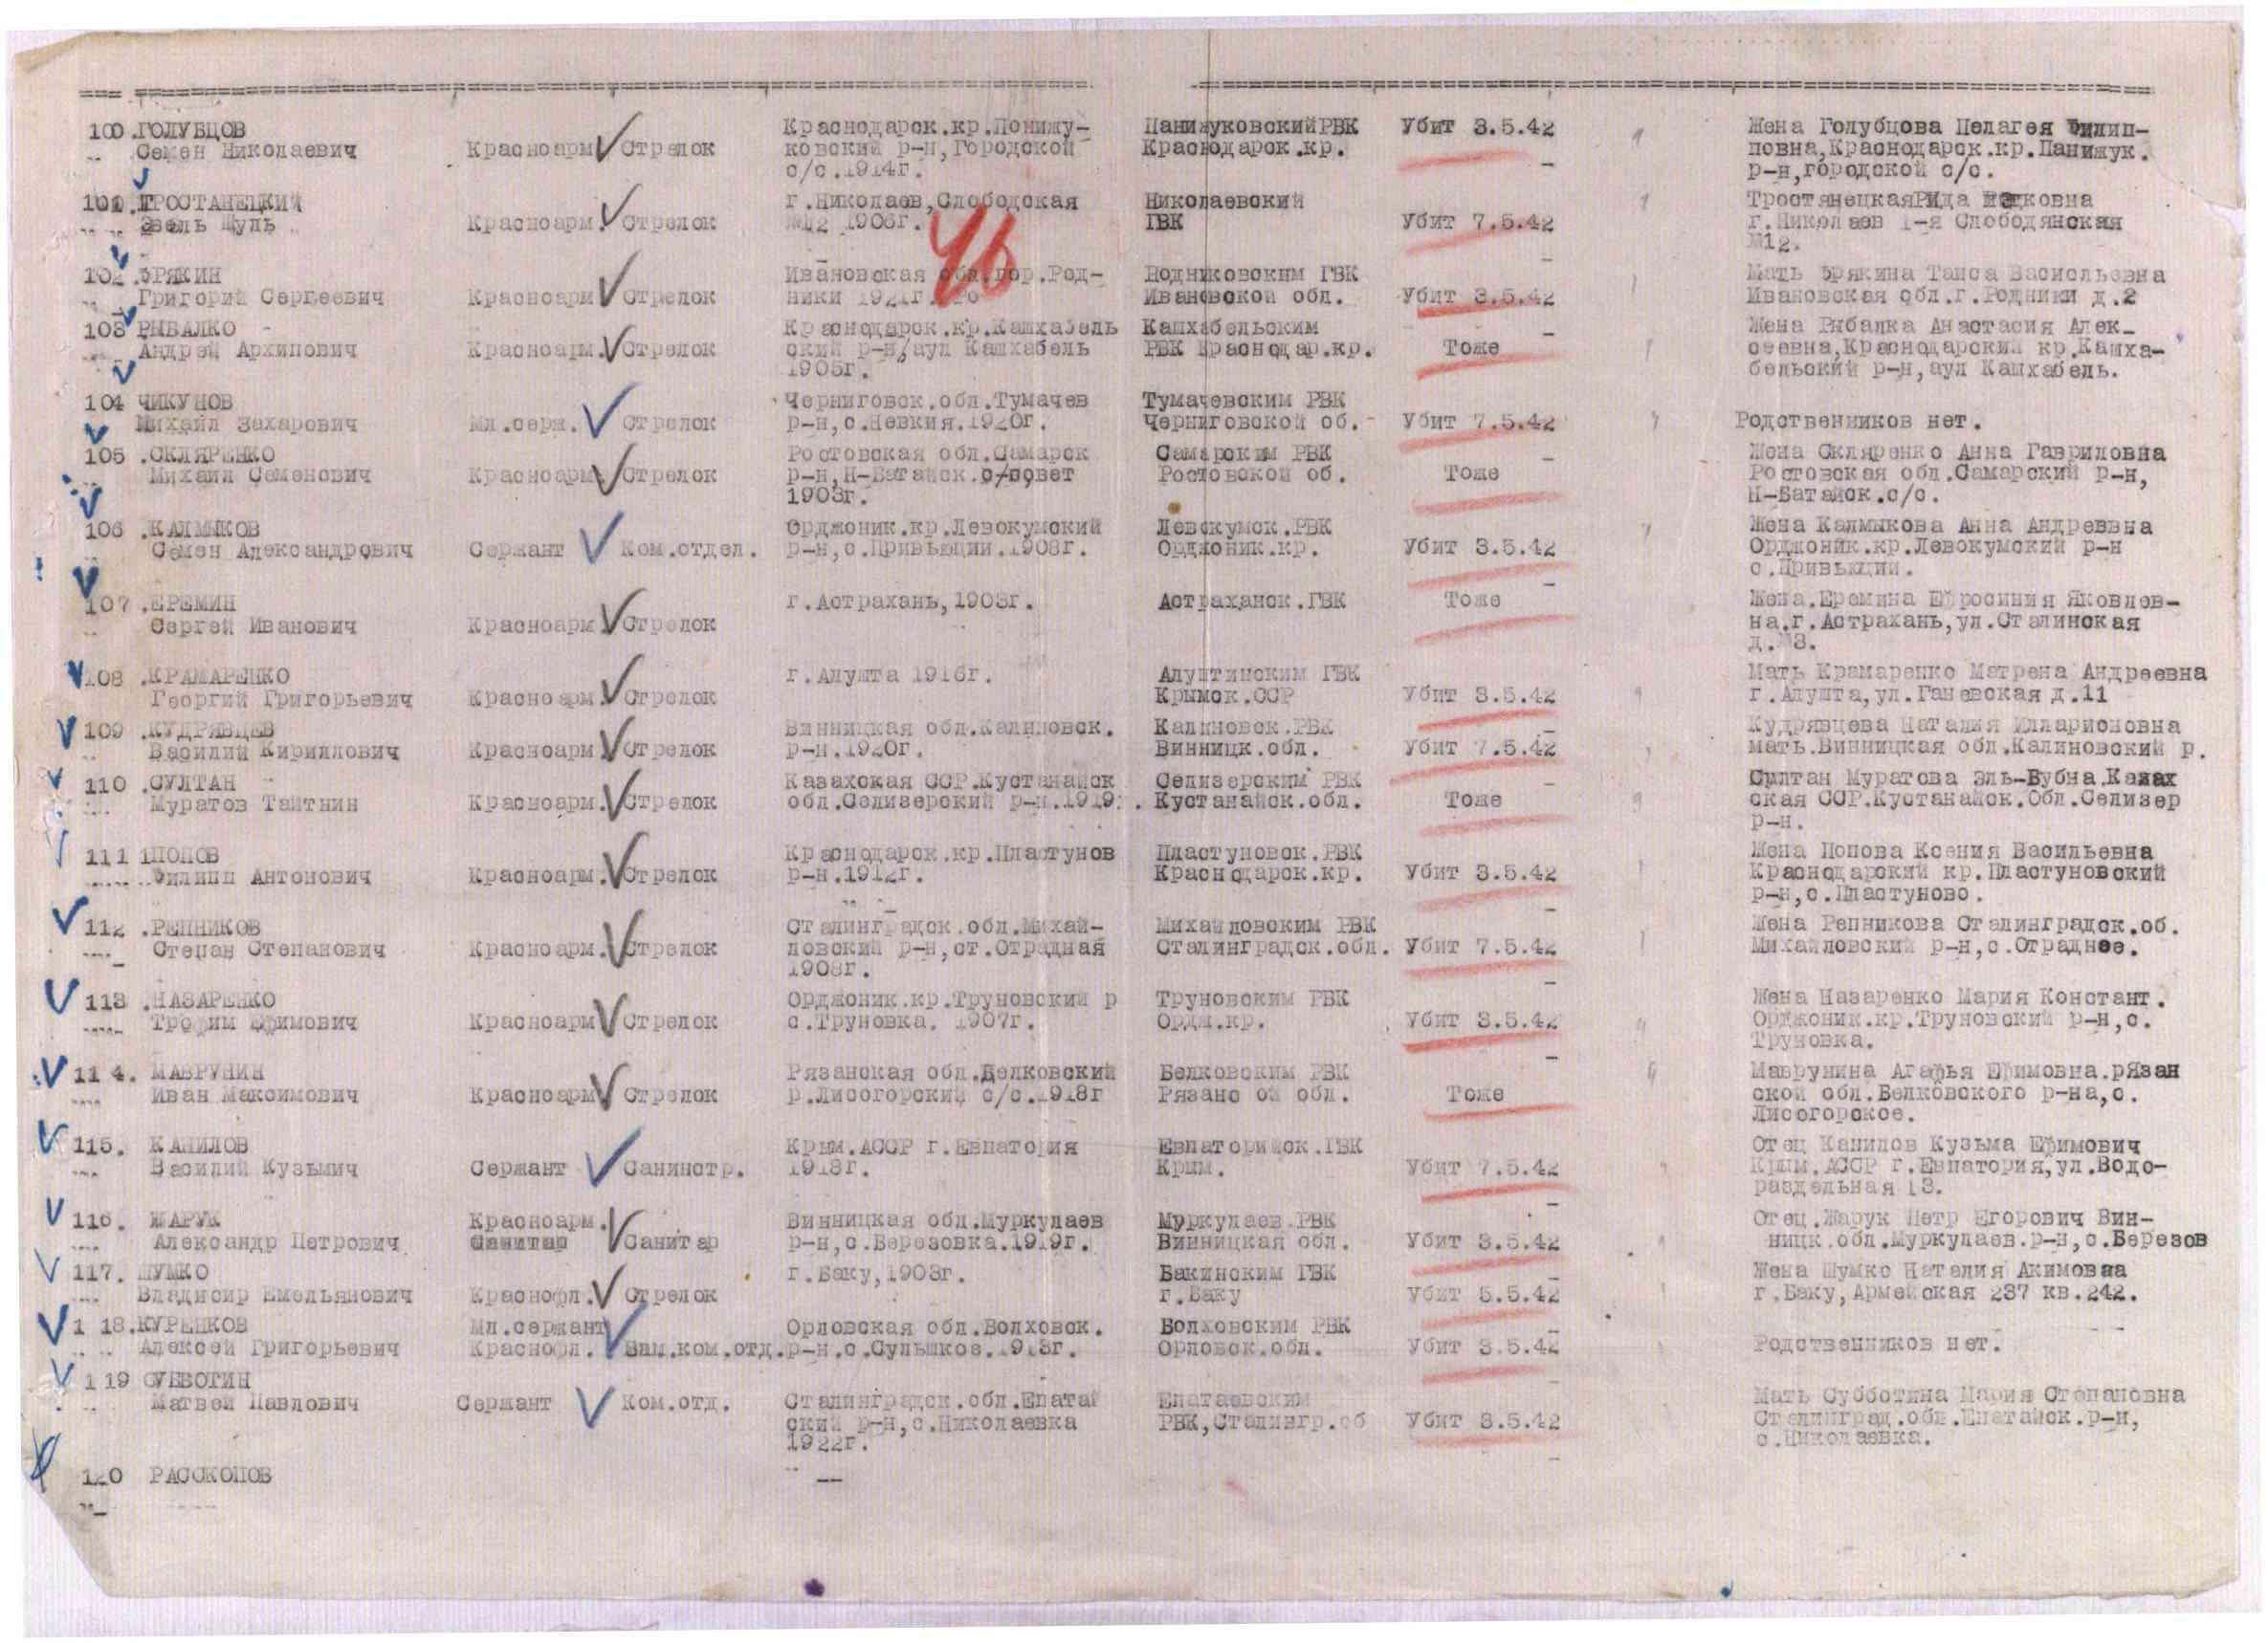 100.ГОЛУБЦОВ Краснодарск.кр.Понижу- ПанижуковскийРВК Убит 3.5.42 Жена Голубцова Пелагея Филип-
Семен Николаевич Красноарм Стрелок ковский р-н,Городской Краснодарск.кр. повна,Краснодарск.кр.Панижук.
с/с.1914г. р-н,городской с/с.
101. ТРОСТАНЕЦКИЙ г.Николаев,Слободская Николаевский ТростянецкаяРида
Эвель Шуль Красноарм. Стрелок №12 1906г. ГВК Убит 7.5.42 г.Николаев 1-я Слободянская
№12.
46
102.ЗРЯКИН Ивановская обл.гор.Род- Родниковским ГВК Мать Зрякина Таиса Васильевна
Григорий Сергеевич Красноарм Стрелок ники 1921г. Ивановской обл. Убит 3.5.42 Ивановская обл.г.Родники д.2
103 РЫБАЛКО Краснодарск.кр.Кашхабель Кашхабельским Жена Рыбалка Анастасия Алек-
Андрей Архипович Красноарм. Стрелок ский р-н,аул Кашхабель РВК Краснодар.кр. Тоже сеевна,Краснодарский кр.Кашха-
1905г. бельский р-н,аул Кашхабель.
104 ЧИКУНОВ Черниговск.обл.Тумачев Тумачевским РВК
Михаил Захарович Мл.серж. Стрелок р-н,с.Невкия.1920г. Черниговской об. Убит 7.5.42 Родственников нет.
105 .СКЛЯРЕНКО Ростовская обл.Самарск Самарским РВК Жена Скляренко Анна Гавриловна
Михаил Семенович Красноарм. Стрелок р-н,Н-Батайск.с/совет Ростовской об. Тоже Ростовская обл.Самарский р-н,
1903г. Н-Батайск.с/с.
106 .КАЛМЫКОВ Орджоник.кр.Левокумский Левокумск.РВК Жена Калмыкова Анна Андреевна
Семен Александрович Сержант Ком.отдел. р-н,с.Привьюции.1908г. Орджоник.кр. Убит 3.5.42 Орджоник.кр.Левокумский р-н
с.Привьюции.
107 .ЕРЕМИН г.Астрахань,1903г. Астраханск.ГВК Тоже Жена.Еремина Ефросиния Яковлев-
Сергей Иванович Красноарм. Стрелок на.г.Астрахань,ул.Сталинская
д.№3.
108 .КРАМАРЕНКО г.Алушта 1916г. Алуштинским ГВК Мать Крамаренко Матрена Андреевна
Георгий Григорьевич Красноарм. Стрелок Крымск.ССР Убит 3.5.42 г.Алушта,ул.Ганевская д.11
109 .КУДРЯВЦЕВ Винницкая обл.Калиновск. Калиновск.РВК Кудрявцева Наталия Илларионовна
Василий Кириллович Красноарм. Стрелок р-н.1920г. Винницк.обл. Убит 7.5.42 мать.Винницкая обл.Калиновский р.
110 .СУЛТАН Казахская ССР.Кустанайск Селизерским РВК Султан Муратова Эль-Бубна.Казах
Муратов Таитнин Красноарм. Стрелок обл.Селизерский р-н.1919г. Кустанайск.обл. Тоже ская ССР.Кустанайск.Обл.Селизер
р-н.
111 ПОПОВ Краснодарск.кр.Пластунов Пластуновск.РВК Жена Попова Ксения Васильевна
Филипп Антонович Красноарм. Стрелок р-н.1912г. Краснодарск.кр. Убит 3.5.42 Краснодарский кр.Пластуновский
р-н,с.Пластуново.
112 .РЕПНИКОВ Сталинградск.обл.Михай- Михайловским РВК Жена Репникова Сталинградск.об.
Степан Степанович Красноарм. Стрелок ловский р-н,ст.Отрадная Сталинградск.обл. Убит 7.5.42 Михайловский р-н,с.Отраднее.
1908г.
113 .НАЗАРЕНКО Орджоник.кр.Труновский р Труновским РВК Жена Назаренко Мария Констант.
Трофим Ефимович Красноарм Стрелок с.Труновка. 1907г. Ордж.кр. Убит 3.5.42 Орджоник.кр.Труновский р-н,с.
Труновка.
114. МАВРУНИН Рязанская обл.Белковский Белковским РВК Маврунина Агафья Ефимовна.рЯзан
Иван Максимович Красноарм Стрелок р.Лисогорский с/с.1918г Рязанс ой обл. Тоже ской обл.Белковского р-на,с.
Лисогорское.
115. КАНИЛОВ Крым.АССР г.Евпатория Евпаторийск.ГВК Отец Канилов Кузьма Ефимович
Василий Кузьмич Сержант Санинстр. 1918г. Крым. Убит 7.5.42 Крым.АССР г.Евпатория,ул.Водо-
раздельная 13.
116. ЖАРУК Красноарм. Винницкая обл.Муркулаев Муркулаев.РВК Отец.Жарук Петр Егорович Вин-
Александр Петрович Санитар Санитар р-н,с.Березовка.1919г. Винницкая обл. Убит 3.5.42 ницк.обл.Муркулаев.р-н,с.Березов
117. ШУМКО г.Баку,1903г. Бакинским ГВК Жена Шумко Наталия Акимовна
Владисир Емельянович Краснофл. Стрелок г.Баку Убит 5.5.42 г.Баку,Армейская 237 кв.242.
118.КУРЕПКОВ Мл.сержант Орловская обл.Волховск. Волховским РВК
Алексей Григорьевич Краснофл. Зам.ком.отд. р-н.с.Сулышков.1913г. Орловск.обл. Убит 3.5.42 Родственников нет.
119 СУББОТИН
Матвей Павлович Сержант Ком.отд. Сталинградск.обл.Енатай Енатаевским Мать Субботина Мария Степановна
ский р-н,с.Николаевка РВК,Сталингр.об Убит 3.5.42 Сталинград.обл.Енатайск.р-н,
1922г. с.Николаевка.
120 РАССКОПОВ